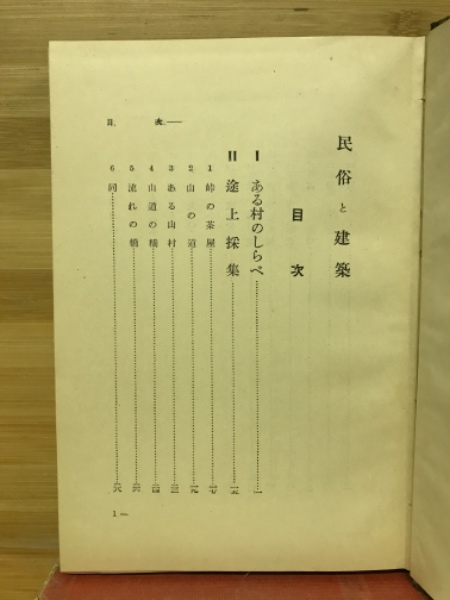 民俗と建築
目次
I ある村のしらべ
II 途上採集
1 峠の茶屋
2 山の道
3 ある山村
4 山道の橋
5 流れの橋
6 同
目次
1